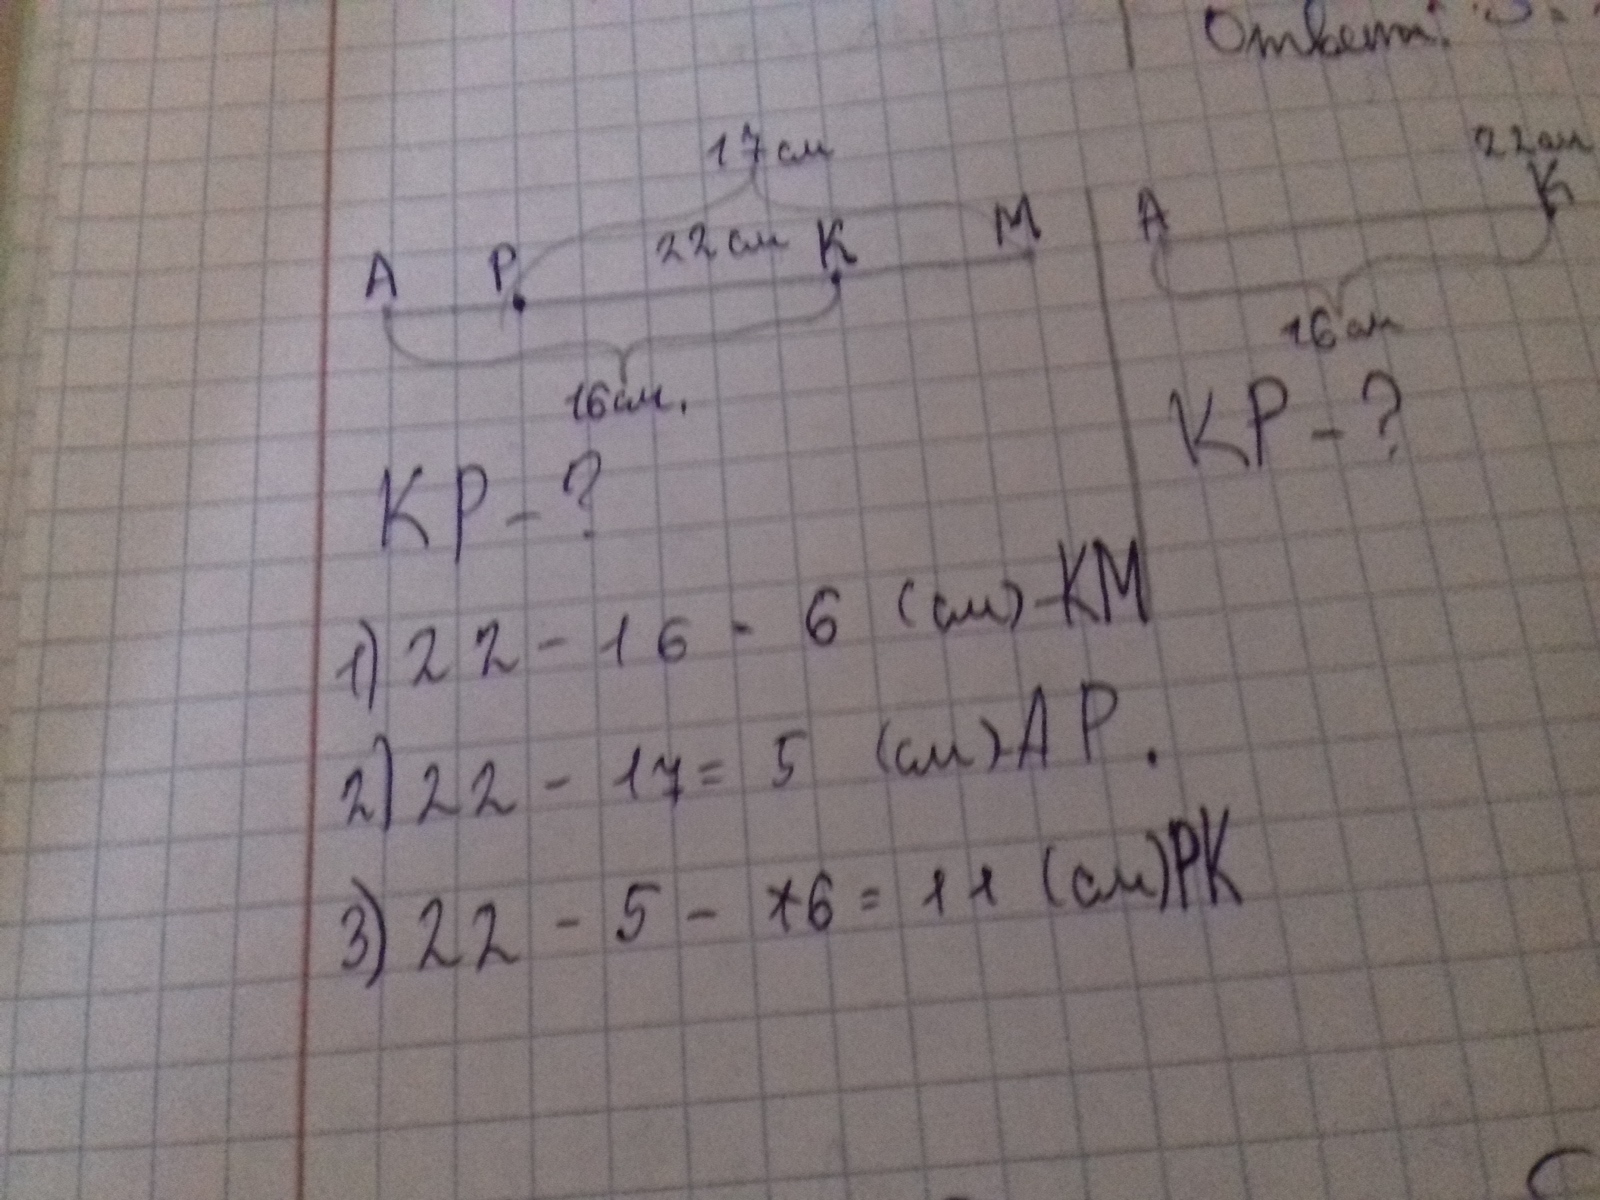 Ответ:
17 см
22 см
A P 22 см K M A K
16 см.
16 см
KP - ?
KP - ?
1) 22 - 16 = 6 (см) - KM
2) 22 - 17 = 5 (см) AP.
3) 22 - 5 - 6 = 11 (см) PK